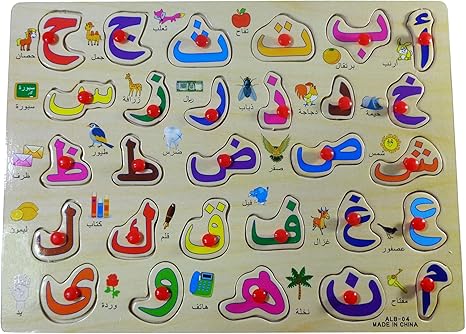 أ ب ت ث ج ح
أرنب برتقال تفاح ثعلب جمل حصان
خ د ذ ر ز س
خيمة دجاجة ذباب ريال زرافة سبورة
ش ص ض ط ظ
شمس صقر ضرس طيور ظرف
ع غ ف ق ك ل
عصفور غزال فيل قلم كتاب ليمون
م ن هـ و ي
مفتاح نخلة هاتف وردة يد
ALB-04
MADE IN CHINA